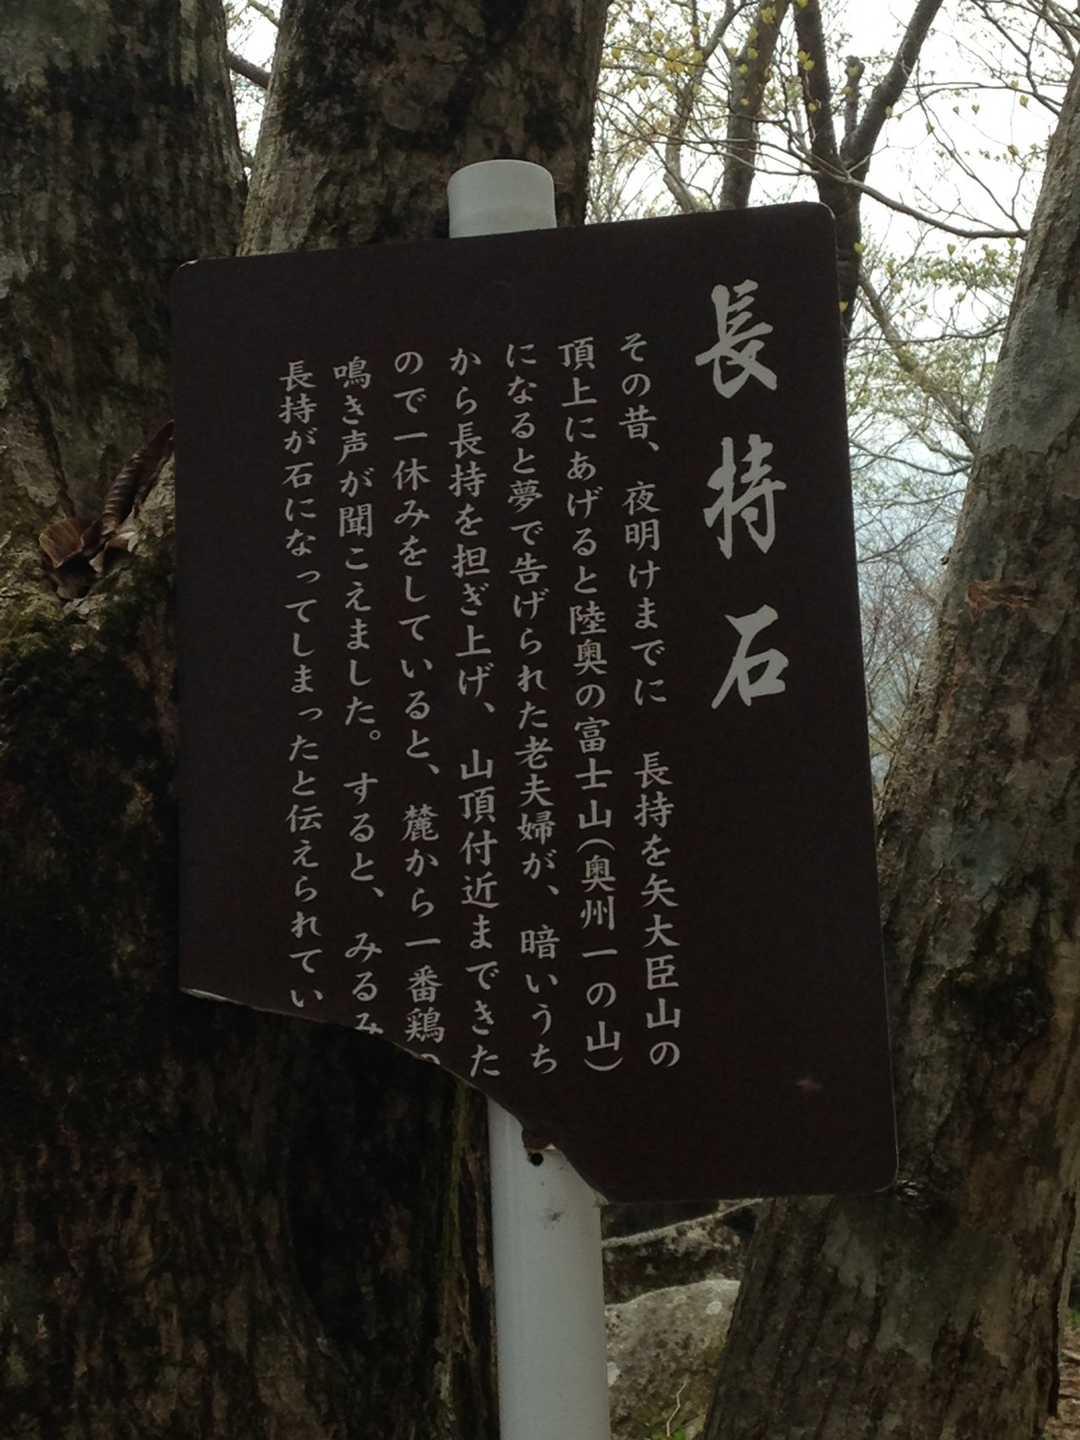 長持石
その昔、夜明けまでに 長持を矢大臣山の
頂上にあげると陸奥の富士山(奥州一の山)
になると夢で告げられた老夫婦が、暗いうち
から長持を担ぎ上げ、山頂付近まできた
ので一休みをしていると、麓から一番鶏の
鳴き声が聞こえました。すると、みるみ
長持が石になってしまったと伝えられてい